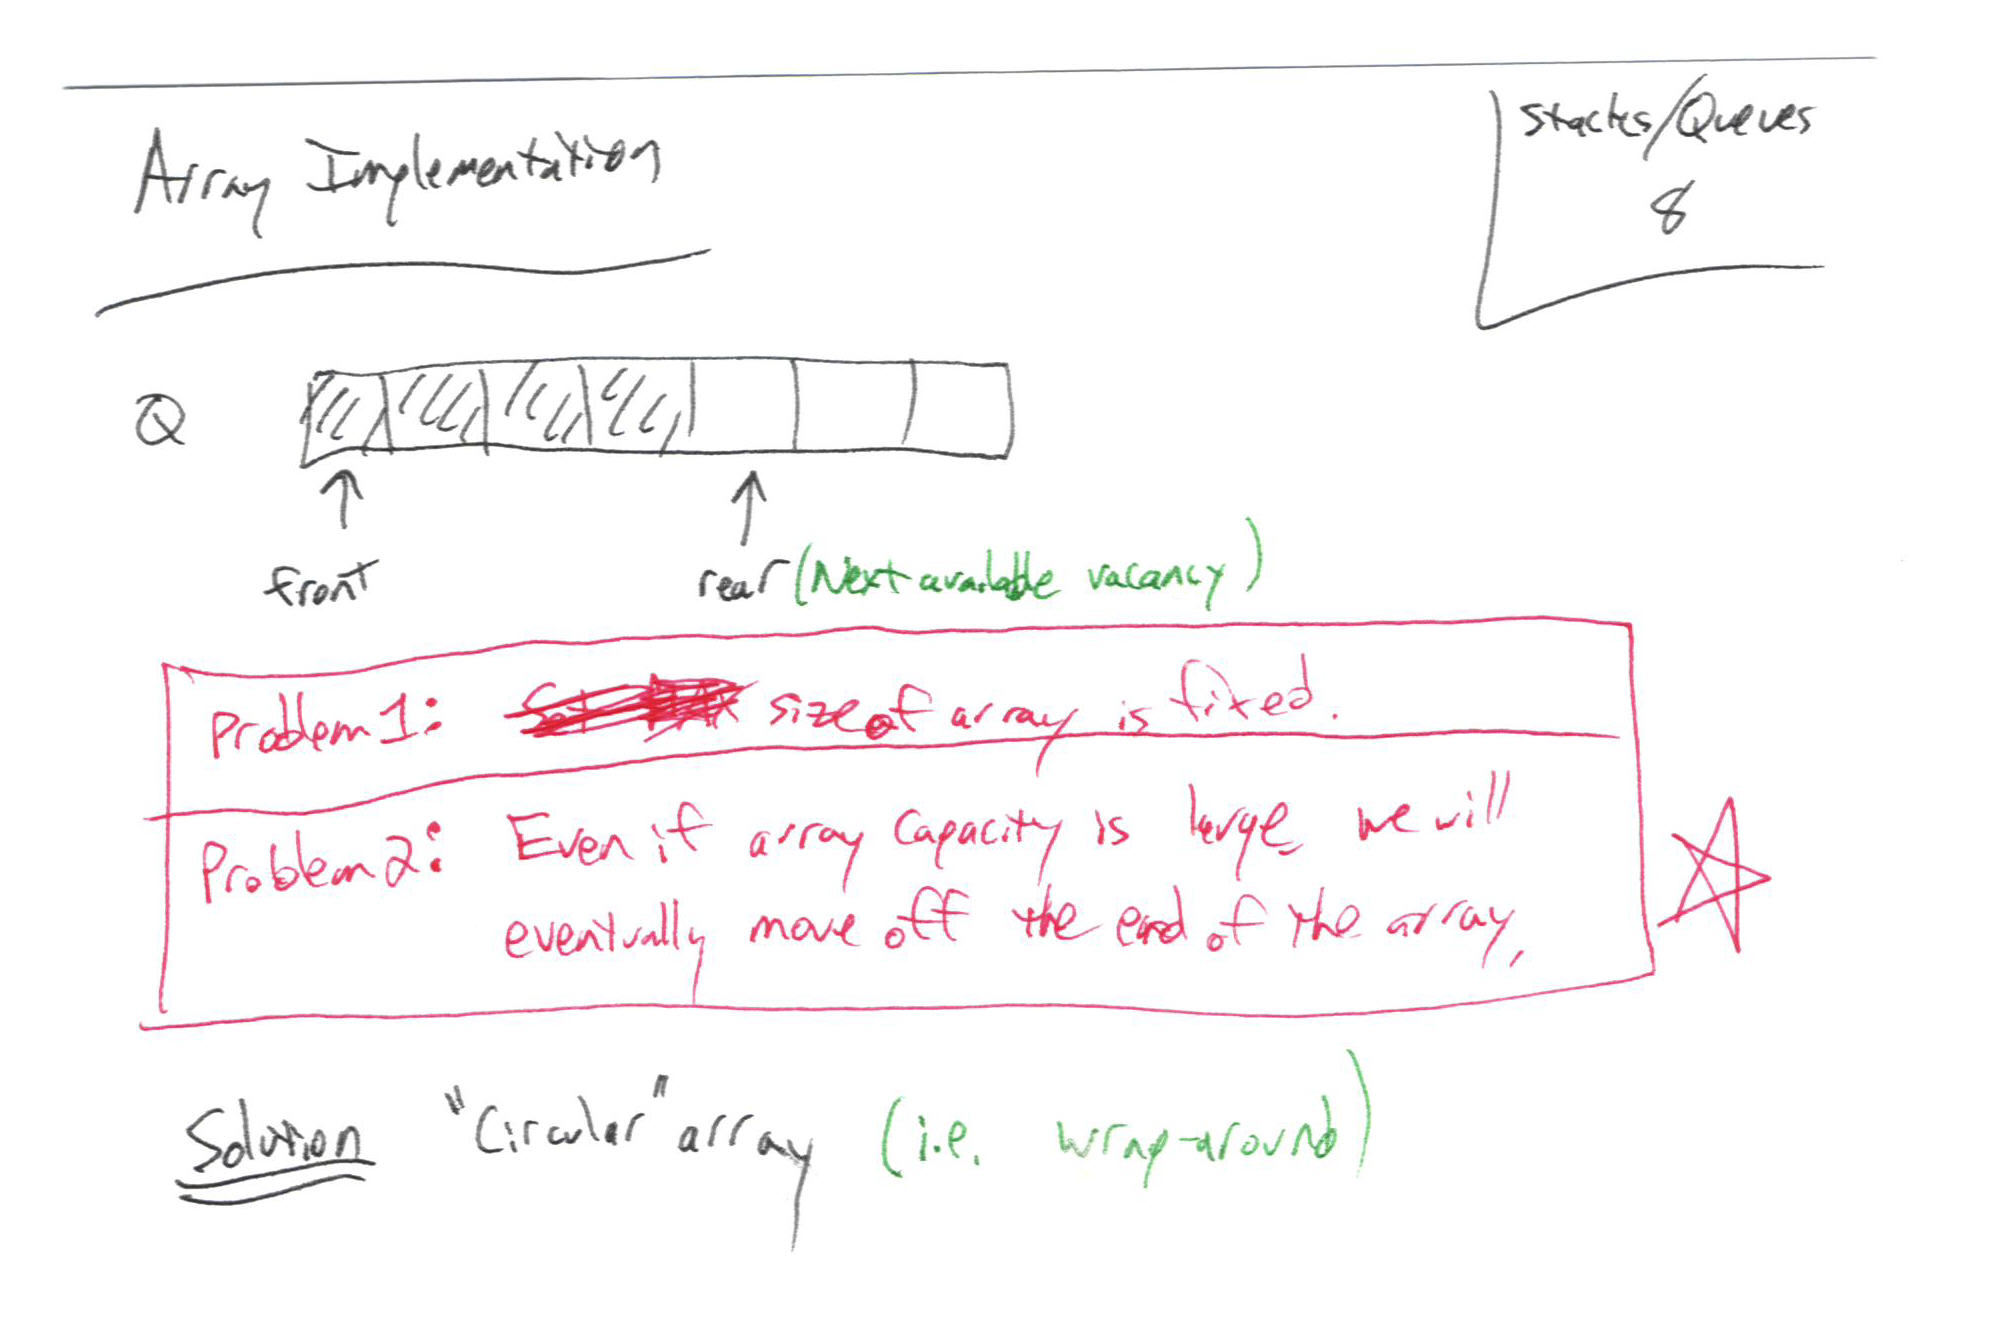 Array Implementation
Stacks/Queues
8
Q
front
rear (Next available vacancy)
Problem 1: size of array is fixed.
Problem 2: Even if array capacity is large we will
eventually move off the end of the array.
Solution "Circular" array (i.e. wrap-around)